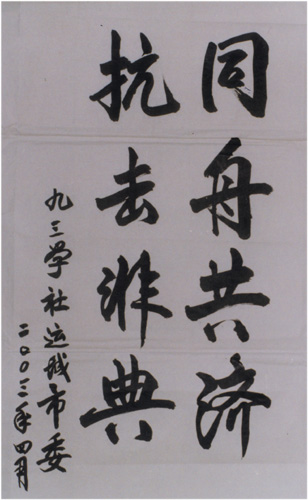 同舟共济
抗击非典
九三学社运城市委
二〇〇三年四月